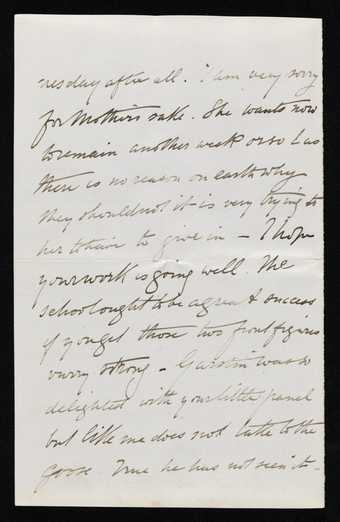 nesday after all. I am very sorry
for Mothers sake. She wants now
to remain another week or so & as
there is no reason on earth why
they should not it is very trying to
her to have to give in – I hope
your work is going well. The
school ought to be a great success
if you get those two front figures
vurry strong – Garstin was so
delighted with your little panel
but like me does not take to the
goose. True he has not seen it –